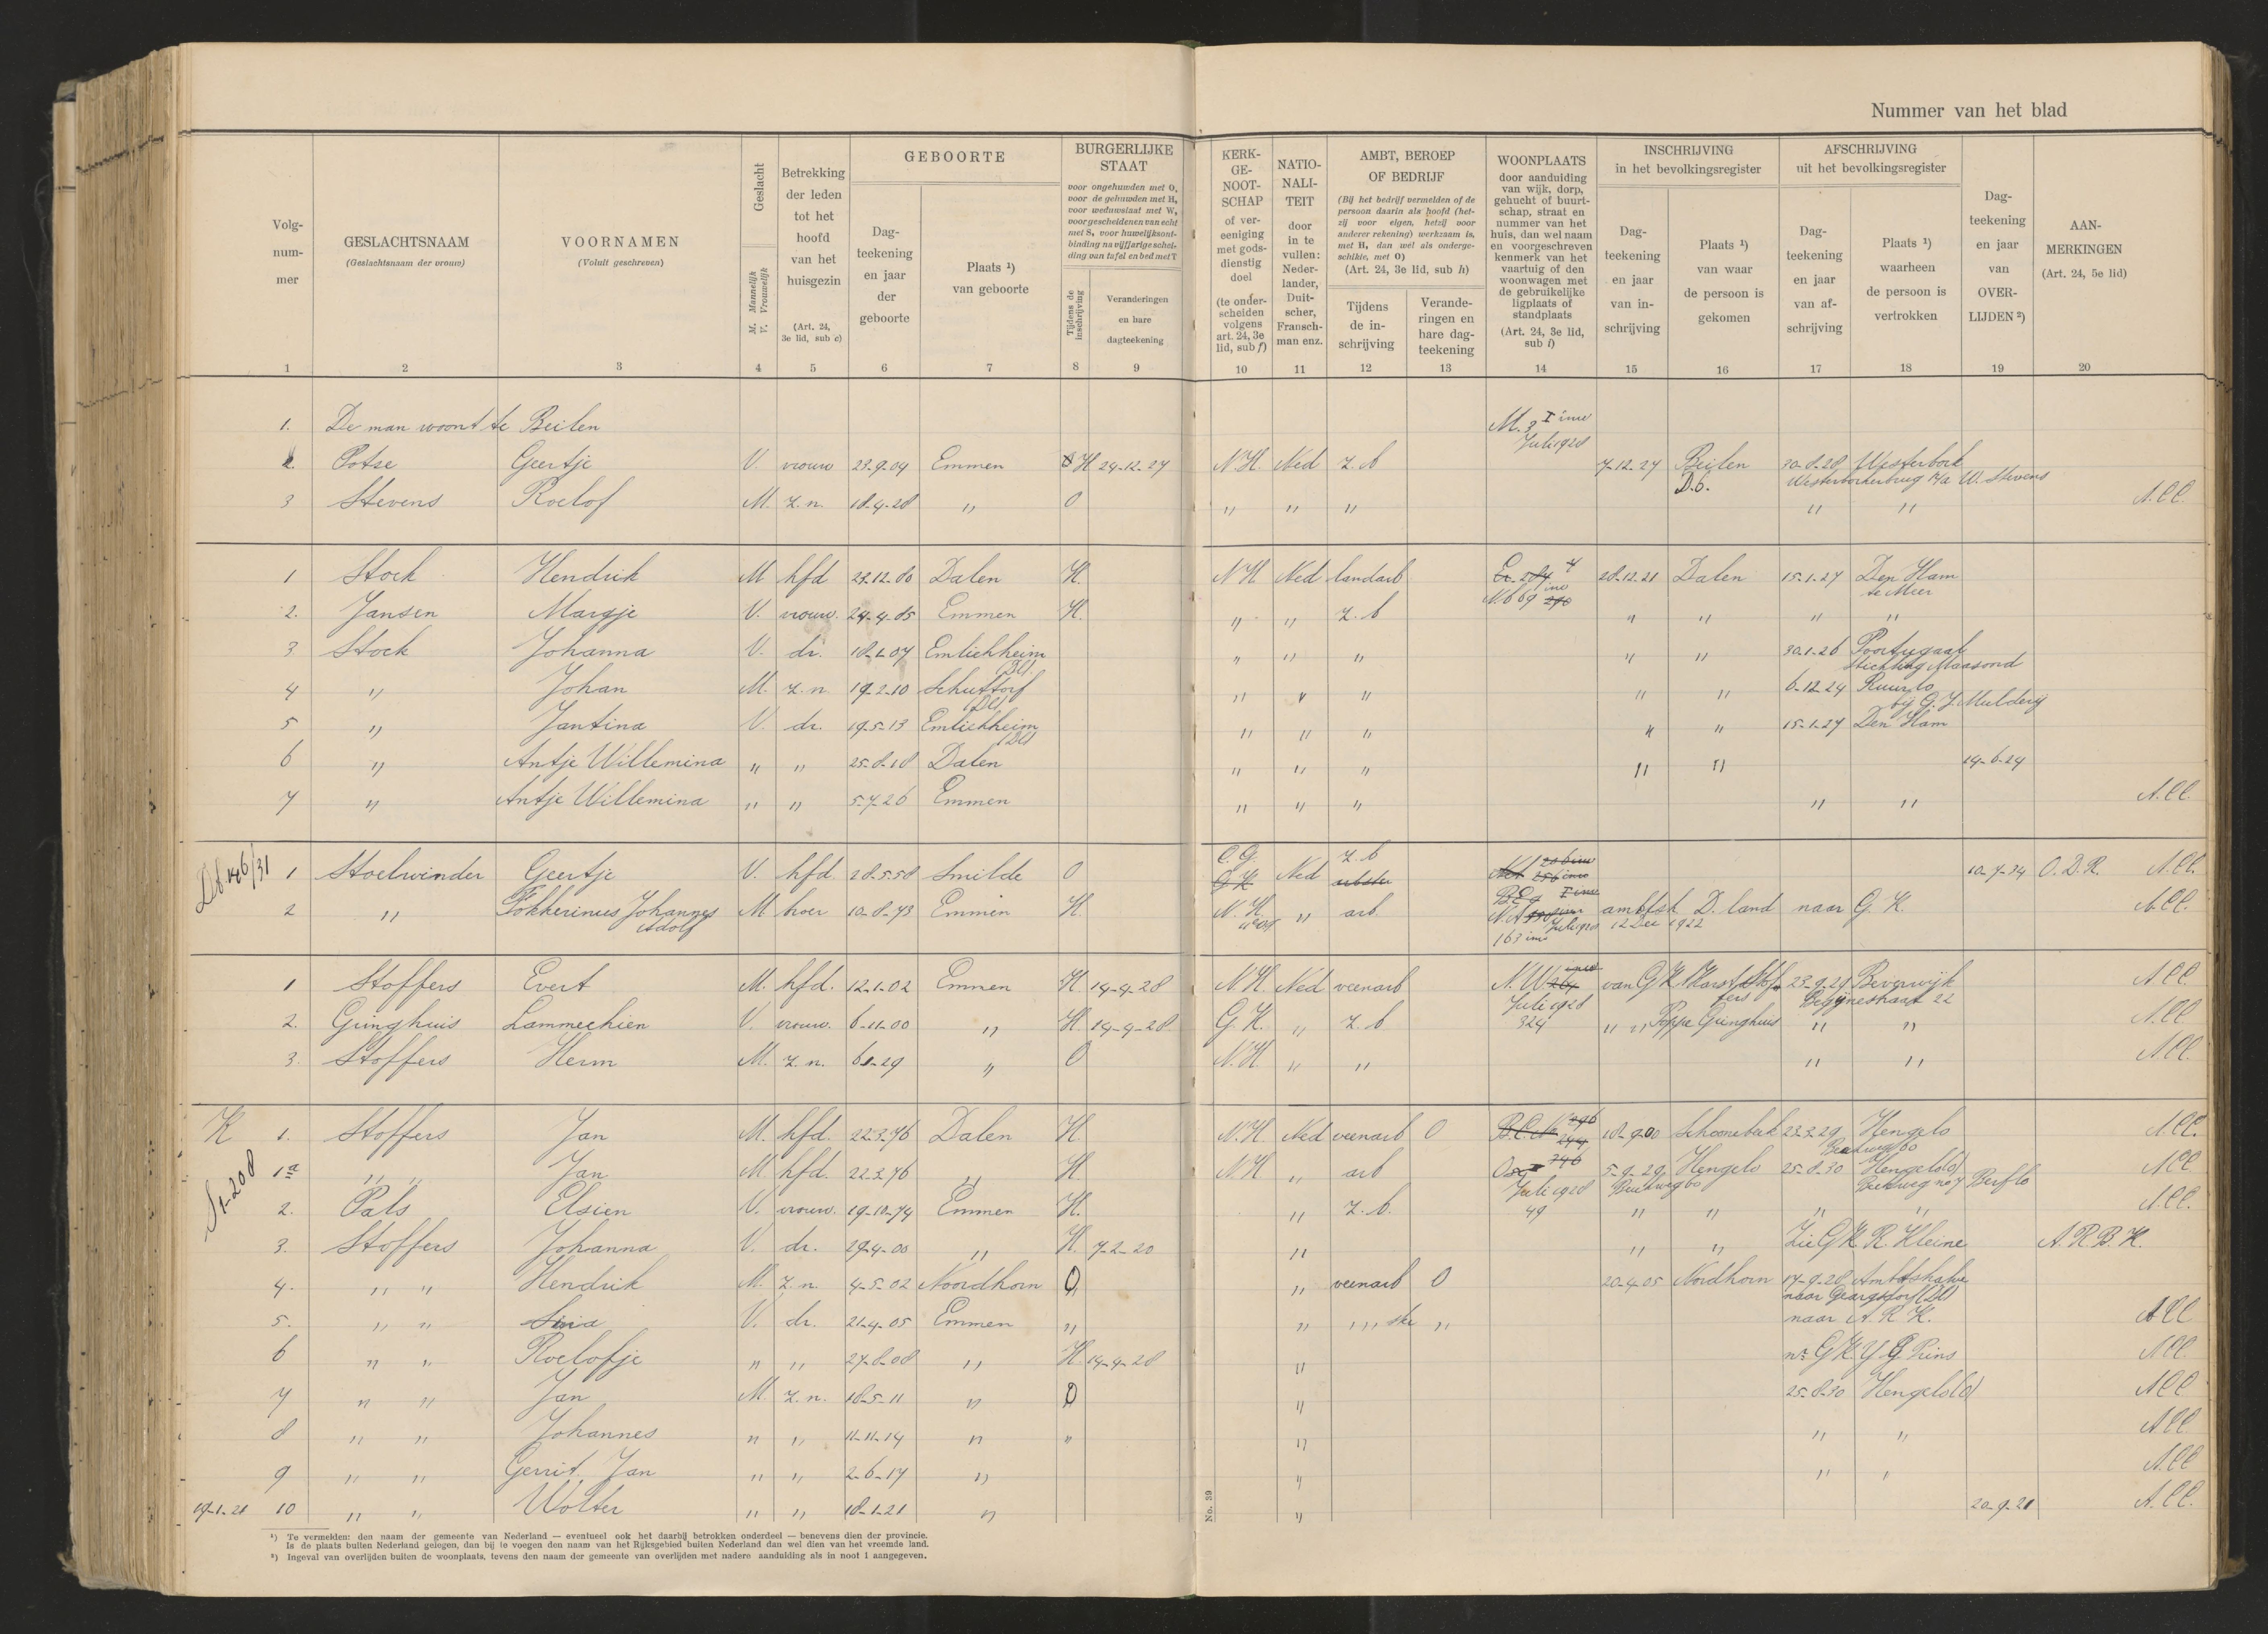 Nummer van het blad
Volg-
num-
mer
GESLACHTSNAAM
(Geslachtsnaam der vrouw)
VOORNAMEN
(Voluit geschreven)
Geslacht
M. Mannelijk
V. Vrouwelijk
Betrekking
der leden
tot het
hoofd
van het
huisgezin
(Art. 24,
3e lid, sub c)
GEBOORTE
Dag-
teekening
en jaar
der
geboorte
Plaats ¹)
van geboorte
BURGERLIJKE
STAAT
voor ongehuwden met O,
voor de gehuwden met H,
voor weduwstaat met W,
voor gescheidenen van echt
met S, voor huwelijksont-
binding na vijfjarige schei-
ding van tafel en bed met T
Tijdens de
inschrijving
Veranderingen
en hare
dagteekening
KERK-
GE-
NOOT-
SCHAP
of ver-
eeniging
met gods-
dienstig
doel
(te onder-
scheiden
volgens
art. 24, 3e
lid, sub f)
NATIO-
NALI-
TEIT
door
in te
vullen:
Neder-
lander,
Duit-
scher,
Fransch-
man enz.
AMBT, BEROEP
OF BEDRIJF
(Bij het bedrijf vermelden of de
persoon daarin als hoofd (het-
zij voor eigen, hetzij voor
anderer rekening) werkzaam is,
met H, dan wel als onderge-
schikte, met O)
(Art. 24, 3e lid, sub h)
Tijdens
de in-
schrijving
Verande-
ringen en
hare dag-
teekening
WOONPLAATS
door aanduiding
van wijk, dorp,
gehucht of buurt-
schap, straat en
nummer van het
huis, dan wel naam
en voorgeschreven
kenmerk van het
vaartuig of den
woonwagen met
de gebruikelijke
ligplaats of
standplaats
(Art. 24, 3e lid,
sub i)
INSCHRIJVING
in het bevolkingsregister
Dag-
teekening
en jaar
van in-
schrijving
Plaats ¹)
van waar
de persoon is
gekomen
AFSCHRIJVING
uit het bevolkingsregister
Dag-
teekening
en jaar
van af-
schrijving
Plaats ¹)
waarheen
de persoon is
vertrokken
Dag-
teekening
en jaar
van
OVER-
LIJDEN ²)
AAN-
MERKINGEN
(Art. 24, 5e lid)
1 2 3 4 5 6 7 8 9 10 11 12 13 14 15 16 17 18 19 20
1. De man woont te Beilen M. 3 I inw
Juli 1928
2. Potze Geertje V. vrouw 23-9-04 Emmen H 24-12-27 N.H. Ned z. b 7-12-27 Beilen 30-8-28 Westerbork
D.b. Westerborkerbrug 17a W. Stevens
3 Stevens Roelof M. z.n. 18-4-28 " O " " " " " A.Cl.
1 Stock Hendrik M hfd 23-12-80 Dalen H. N.H. Ned landarb 28-12-21 Dalen 15-1-27 Den Ham
te Meer
2. Jansen Margje V. vrouw. 24-4-05 Emmen H. " " z. b " " " "
3 Stock Johanna V. dr. 18-1-07 Emlichheim " " " " " 30-1-26 Poortugaal
(Dl) Stichting Maasoord
4 " Johan M. z.n 19-2-10 Schuttorf " " " " " 6-12-24 Ruurlo
(Dl) bij G.J. Mulderij
5 " Jantina V. dr. 19-5-13 Emlichheim " " " " " 15-1-27 Den Ham
(Dl)
6 " Antje Willemina " " 25-8-18 Dalen " " " " " 14-6-24
7 " Antje Willemina " " 5-7-26 Emmen " " " " " A.Cl.
Db 146/31
1 Stoelwinder Geertje V. hfd. 28-5-58 Smilde O C.G. Ned z. b 10-7-34 O.D.R. A.Cl.
G K arbster
2 " Fokkerinus Johannes M broer 10-8-73 Emmen H. N.H. " arb ambtsh D. land naar G.K. A.Cl.
Adolf 163 inw Juli 1928 12 Dec 1922
1 Stoffers Evert M. hfd. 12-1-02 Emmen H 14-4-28 N.H. Ned veenarb van GK Karst Stof 23-9-29 Beverwijk A.Cl.
Juli 1928 fers Begijnestraat 22
2. Gringhuis Lammechien V. vrouw. 6-11-00 " H. 14-4-28 G.K. " z. b 324 " " Poppe Gringhuis " " A.Cl
3. Stoffers Herm M. z.n. 6-1-29 " O N.H. " " " " A.Cl.
K 1. Stoffers Jan M. hfd. 22-3-76 Dalen H. N.H. Ned veenarb O 18-9-00 Schoonebeek 23-3-29 Hengelo A.Cl.
St 208
1a " " Jan M. hfd. 22-3-76 " H. N.H " arb 5-9-29 Hengelo 25-8-30 Hengelo(O) A.Cl
Juli 1928 Berflo
2. Pals Elsien V. vrouw. 19-10-74 Emmen H. " z. b. 49 " " " " A.Cl.
3. Stoffers Johanna V. dr. 29-4-00 " H. 7-2-20 " " " Zie GK R. Kleine A.R.B.K.
4. " " Hendrik M. z.n. 4-5-02 Noordhorn O " veenarb O 20-4-05 Nordhorn 17-9-28 Ambtshalve
naar Georgsdorf (Dl)
5. " " V. dr. 21-4-05 Emmen " " " ster " naar A.R.K. A.Cl
6 " " Roelofje " " 27-8-08 " H. 14-4-28 " nr GK Y G Prins A.Cl.
7 " " Jan M. z.n. 18-5-11 " O " 25-8-30 Hengelo(O) A.Cl.
8 " " Johannes " " 11-11-14 " " " " " A.Cl.
9 " " Gerrit Jan " " 2-6-17 " " " " A.Cl
19-1-21 10 " " Wolter " " 18-1-21 " " 20-9-21 A.Cl.
No. 39
¹) Te vermelden: den naam der gemeente van Nederland — eventueel ook het daarbij betrokken onderdeel — benevens dien der provincie.
Is de plaats buiten Nederland gelegen, dan bij te voegen den naam van het Rijksgebied buiten Nederland dan wel dien van het vreemde land.
²) Ingeval van overlijden buiten de woonplaats, tevens den naam der gemeente van overlijden met nadere aanduiding als in noot 1 aangegeven.